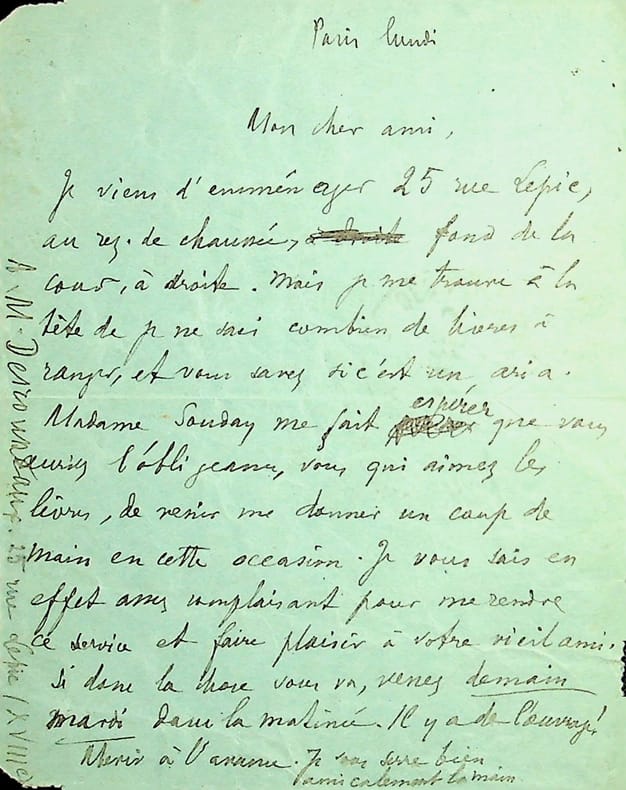 Paris lundi
Mon cher ami,
Je viens d'emménager 25 rue Lepic,
au rez-de chaussée, à droite fond de la
cour, à droite. Mais je me trouve à la
tête de je ne sais combien de livres à
ranger, et vous savez si c'est un aria.
Madame Souday me fait espérer que vous
auriez l'obligeance, vous qui aimez les
livres, de venir me donner un coup de
main en cette occasion. Je vous sais en
effet assez complaisant pour me rendre
ce service et faire plaisir à votre vieil ami.
Si donc la chose vous va, venez demain
mardi dans la matinée. Il y a de l'ouvrage!
Merci à l'avance. Je vous serre bien
amicalement la main
à M. 25 rue Lepic (XVIIIe